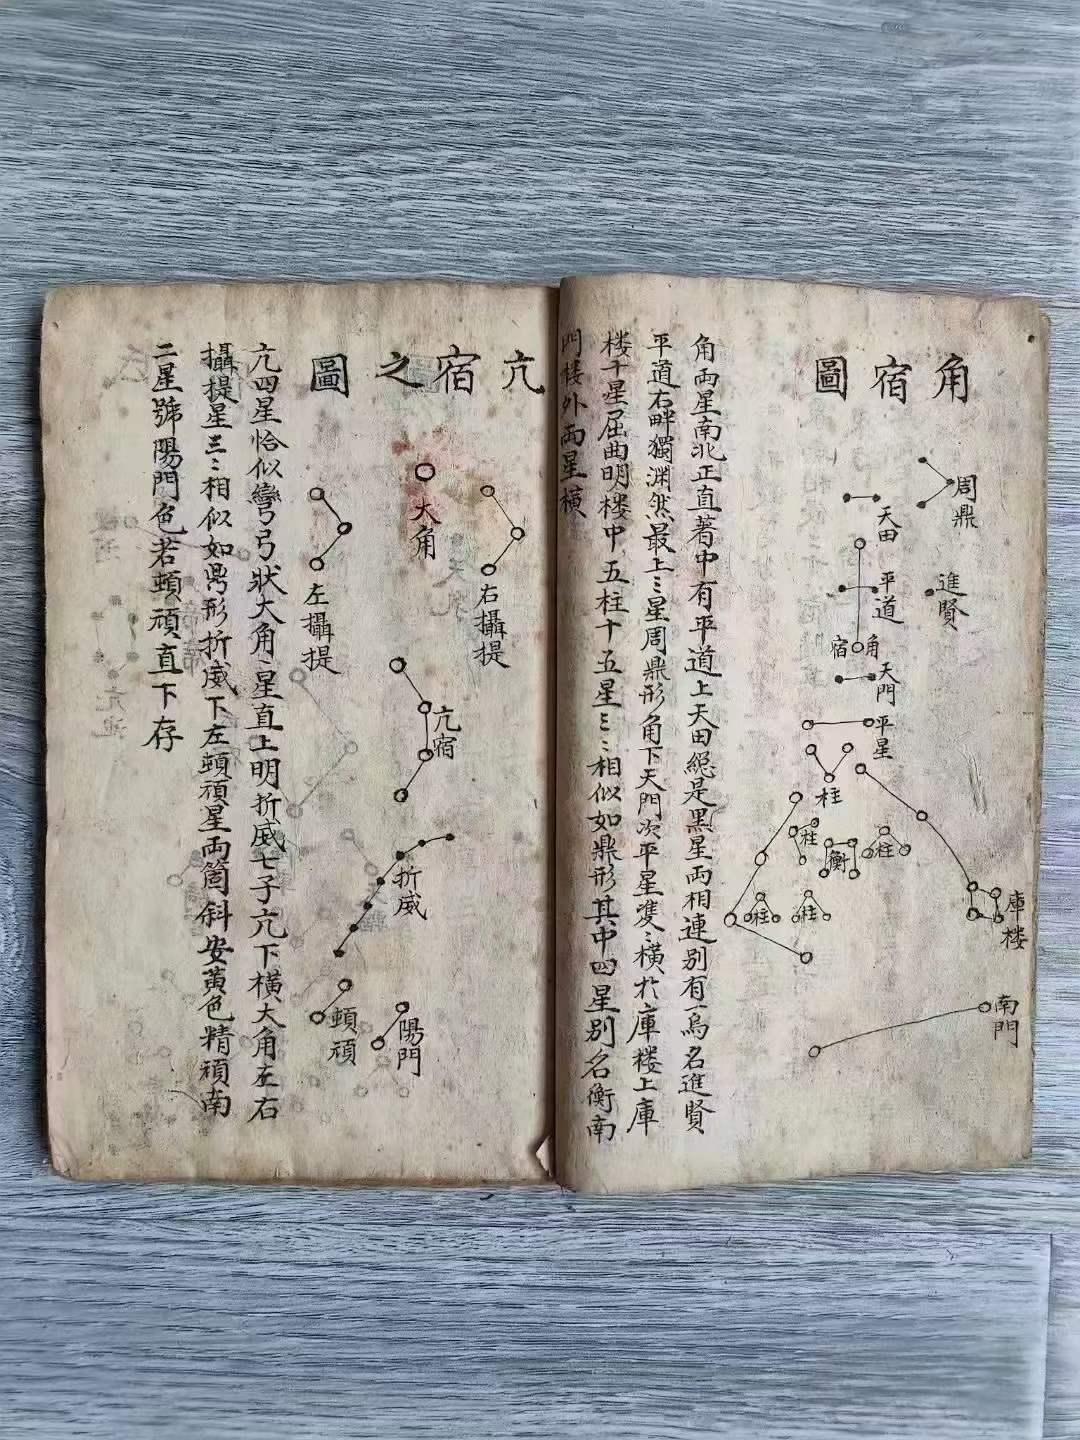 角宿圖
周鼎
天田
進賢
平道
角宿
天門
平星
柱
柱
衡
柱
柱
柱
庫楼
南門
角両星南北正直著中有平道上天田縂是黒星両相連别有一烏名進賢
平道右畔獨渊然最上三星周鼎形角下天門次平星雙〻横扵庫楼上庫
楼十星屈曲明楼中五柱十五星三〻相似如鼎形其中四星别名衡南
門楼外両星横
亢宿之圖
大角
右攝提
左攝提
亢宿
折威
頓頑
陽門
亢四星恰似彎弓狀大角〻星直上明折威七子亢下横大角左右
攝提星三〻相似如鼎形折威下左頓頑星両箇斜安黄色精頑南
二星號陽門色若頓頑直下存